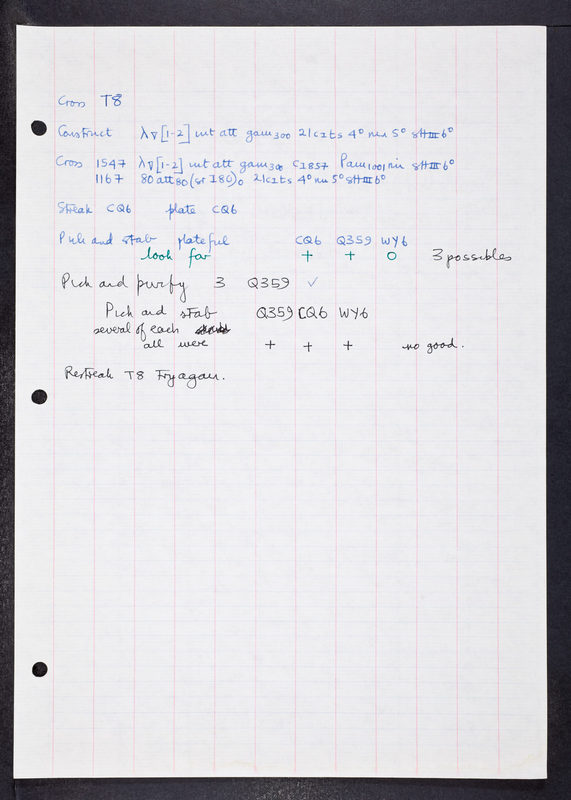 Cross T8
Construct λ∇[1-2] int att gam300 21c1ts 4° nin 5° sHIII6°
Cross 1547 λ∇[1-2] int att gam300 c1857 Pam1001 nin sHIII6°
1167 80 att80 (sr I80)0 21c1ts 4° nin 5° sHIII6°
Streak CQ6 plate CQ6
Pick and stab plateful CQ6 Q359 WY6
look for + + 0 3 possibles
Pick and purify 3 Q359 ✓
Pick and stab Q359 CQ6 WY6
several of each
all were + + + no good.
Restreak T8 Try again.